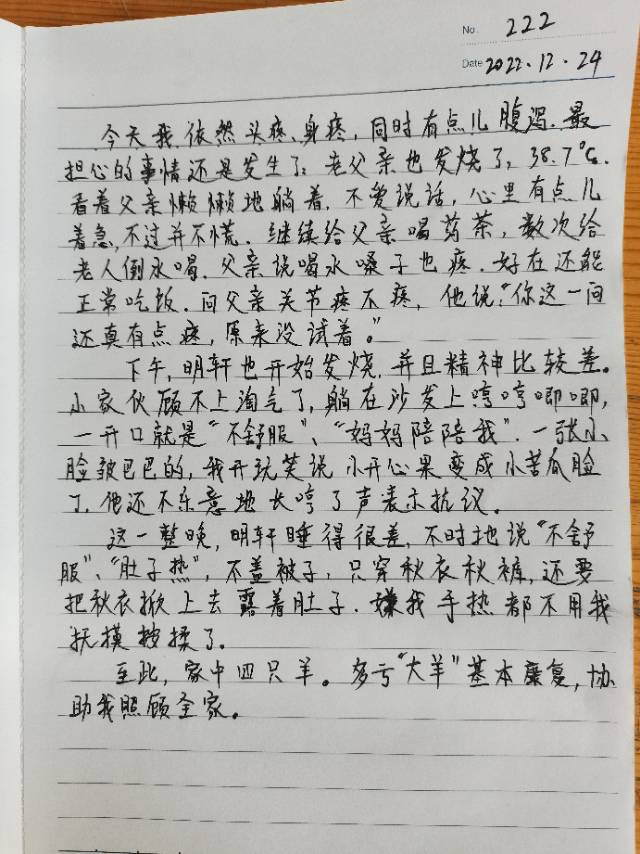 No. 222
Date 2022.12.24
今天我依然头疼、身疼，同时有点儿腹泻.最
担心的事情还是发生了:老父亲也发烧了,38.7℃.
看着父亲懒懒地躺着,不爱说话,心里有点儿
着急,不过并不慌.继续给父亲喝药茶,数次给
老人倒水喝.父亲说喝水嗓子也疼.好在还能
正常吃饭.问父亲关节疼不疼,他说:"你这一问
还真有点疼,原来没试着。"
下午,明轩也开始发烧.并且精神比较差。
小家伙顾不上淘气了,躺在沙发上哼哼唧唧,
一开口就是"不舒服"、"妈妈陪陪我".一张小
脸皱巴巴的,我开玩笑说小开心果变成小苦瓜脸
了.他还不乐意地长哼了声表示抗议。
这一整晚,明轩睡得很差,不时地说"不舒
服"、"肚子热",不盖被子,只穿秋衣秋裤,还要
把秋衣掀上去露着肚子.嫌我手热都不用我
抚摸按揉了.
至此,家中四只羊。多亏"大羊"基本康复,协
助我照顾全家。